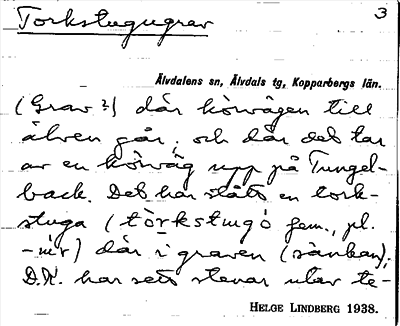 Torkstugugrav
3
Älvdalens sn, Älvdals tg, Kopparbergs län.
(Grav?) där körvägen till
älven går, och där det tar
av en körväg upp på Tungel-
back. Det har stått en tork-
stuga (törkstugó fem., pl.
-ùr) där i graven (sänkan);
D.K. har sett stenar utav te-
HELGE LINDBERG 1938.